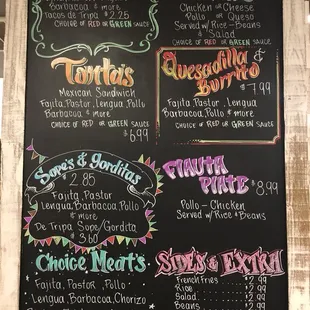 Barbacoa & more
Tacos de Tripa $2.25
CHOICE OF RED OR GREEN SAUCE
Chicken or Cheese
Pollo or Queso
Served w/ Rice-Beans
& Salad
CHOICE OF RED OR GREEN SAUCE
Tortas
Mexican Sandwich
Fajita, Pastor, Lengua, Pollo
Barbacoa & more
CHOICE OF RED OR GREEN SAUCE
$6.99
Quesadilla &
Burrito
$7.99
Fajita, Pastor, Lengua
Barbacoa, Pollo & more
CHOICE OF RED OR GREEN SAUCE
Sope's & gorditas
$2.85
Fajita, Pastor
Lengua, Barbacoa, Pollo
& more
De Tripa Sope/Gordita
$3.60
FlAUTA
PlATE $8.99
Pollo - Chicken
Served w/ Rice & Beans
Choice Meat's
Fajita, Pastor, Pollo
Lengua, Barbacoa, Chorizo
SIDE'S & EXTRA
French Fries $2.99
Rice $2.99
Salad $2.99
Beans $2.99